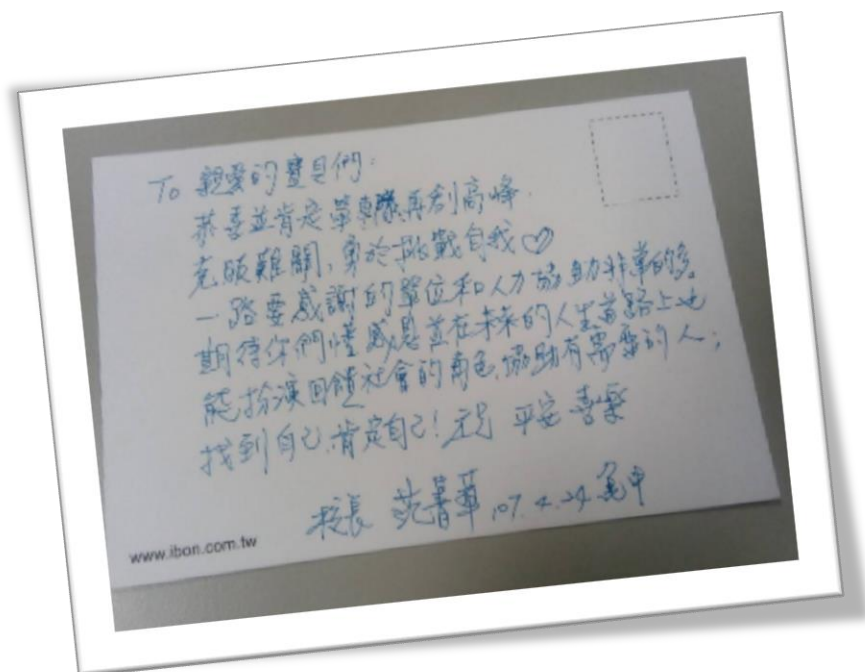 To 親愛的寶貝們:
恭喜並肯定單車隊再創高峰.
克服難關, 勇於挑戰自我♡
一路要感謝的單位和人力協助非常的多,
期待你們懂感恩並在未來的人生道路上也
能扮演回饋社會的角色, 協助有需要的人;
找到自己, 肯定自己! 祝 平安 喜樂
校長 范菁華 107.4.24
www.ibon.com.tw